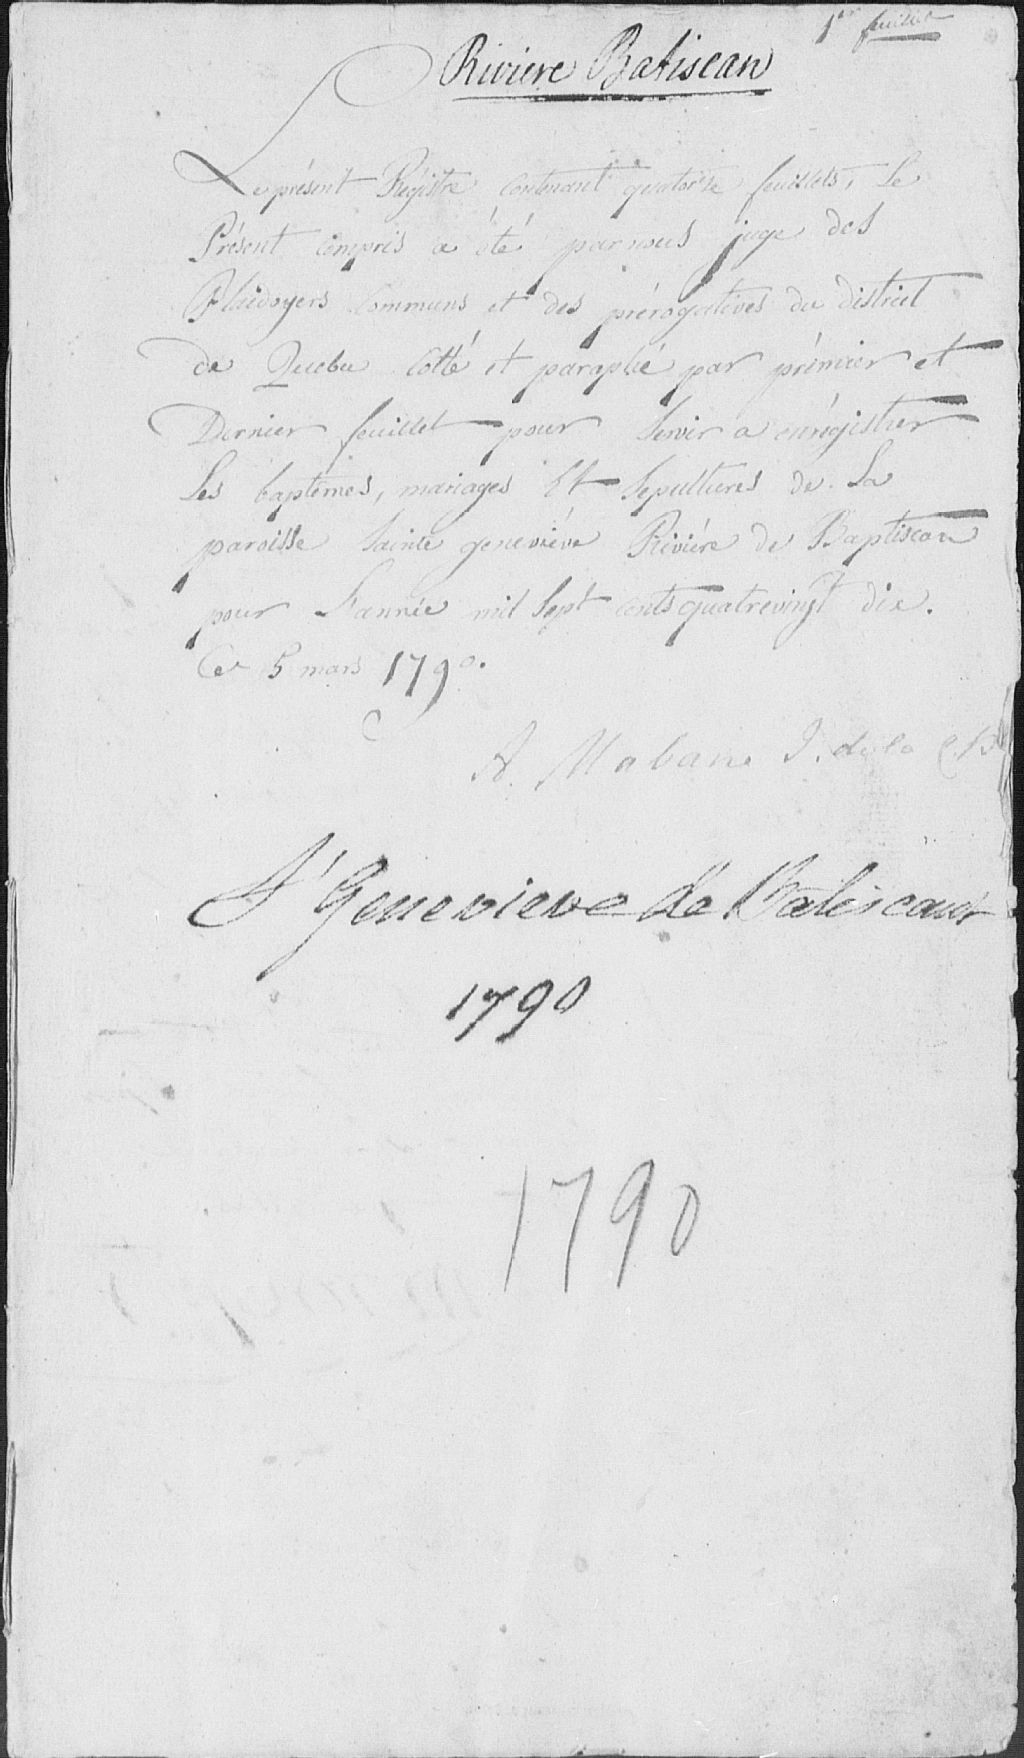 1er feuillet
Riviere Batiscan
Le présent Régistre contenant quatorze feuillets, Le
Présent Compris a été par nous juge des
Plaidoyers Communs et des prérogatives du district
de Quebec Cotté et paraphé par prémier et
Dernier feuillet pour Servir a enrégistrer
Les baptêmes, mariages Et Sepultures de La
paroisse Sainte geneviéve Riviére de Baptiscan
pour L'année mil Sept cents quatrevingt dix.
Ce 5 mars 1790.
A. Mabane J. de la
St Genevieve de Batiscan
1790
1790